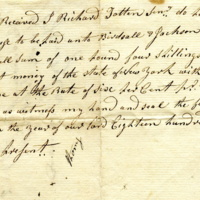 Received I Richard Totten Senr. do he
ise to be paid unto Birdsall & Jackson
full sum of one pound four Shillings
nt money of the state of New York with
e at the Rate of Six Per Cent Pr.
as witness my hand and seal the f
n the year of our Lord Eighteen hundred
present.